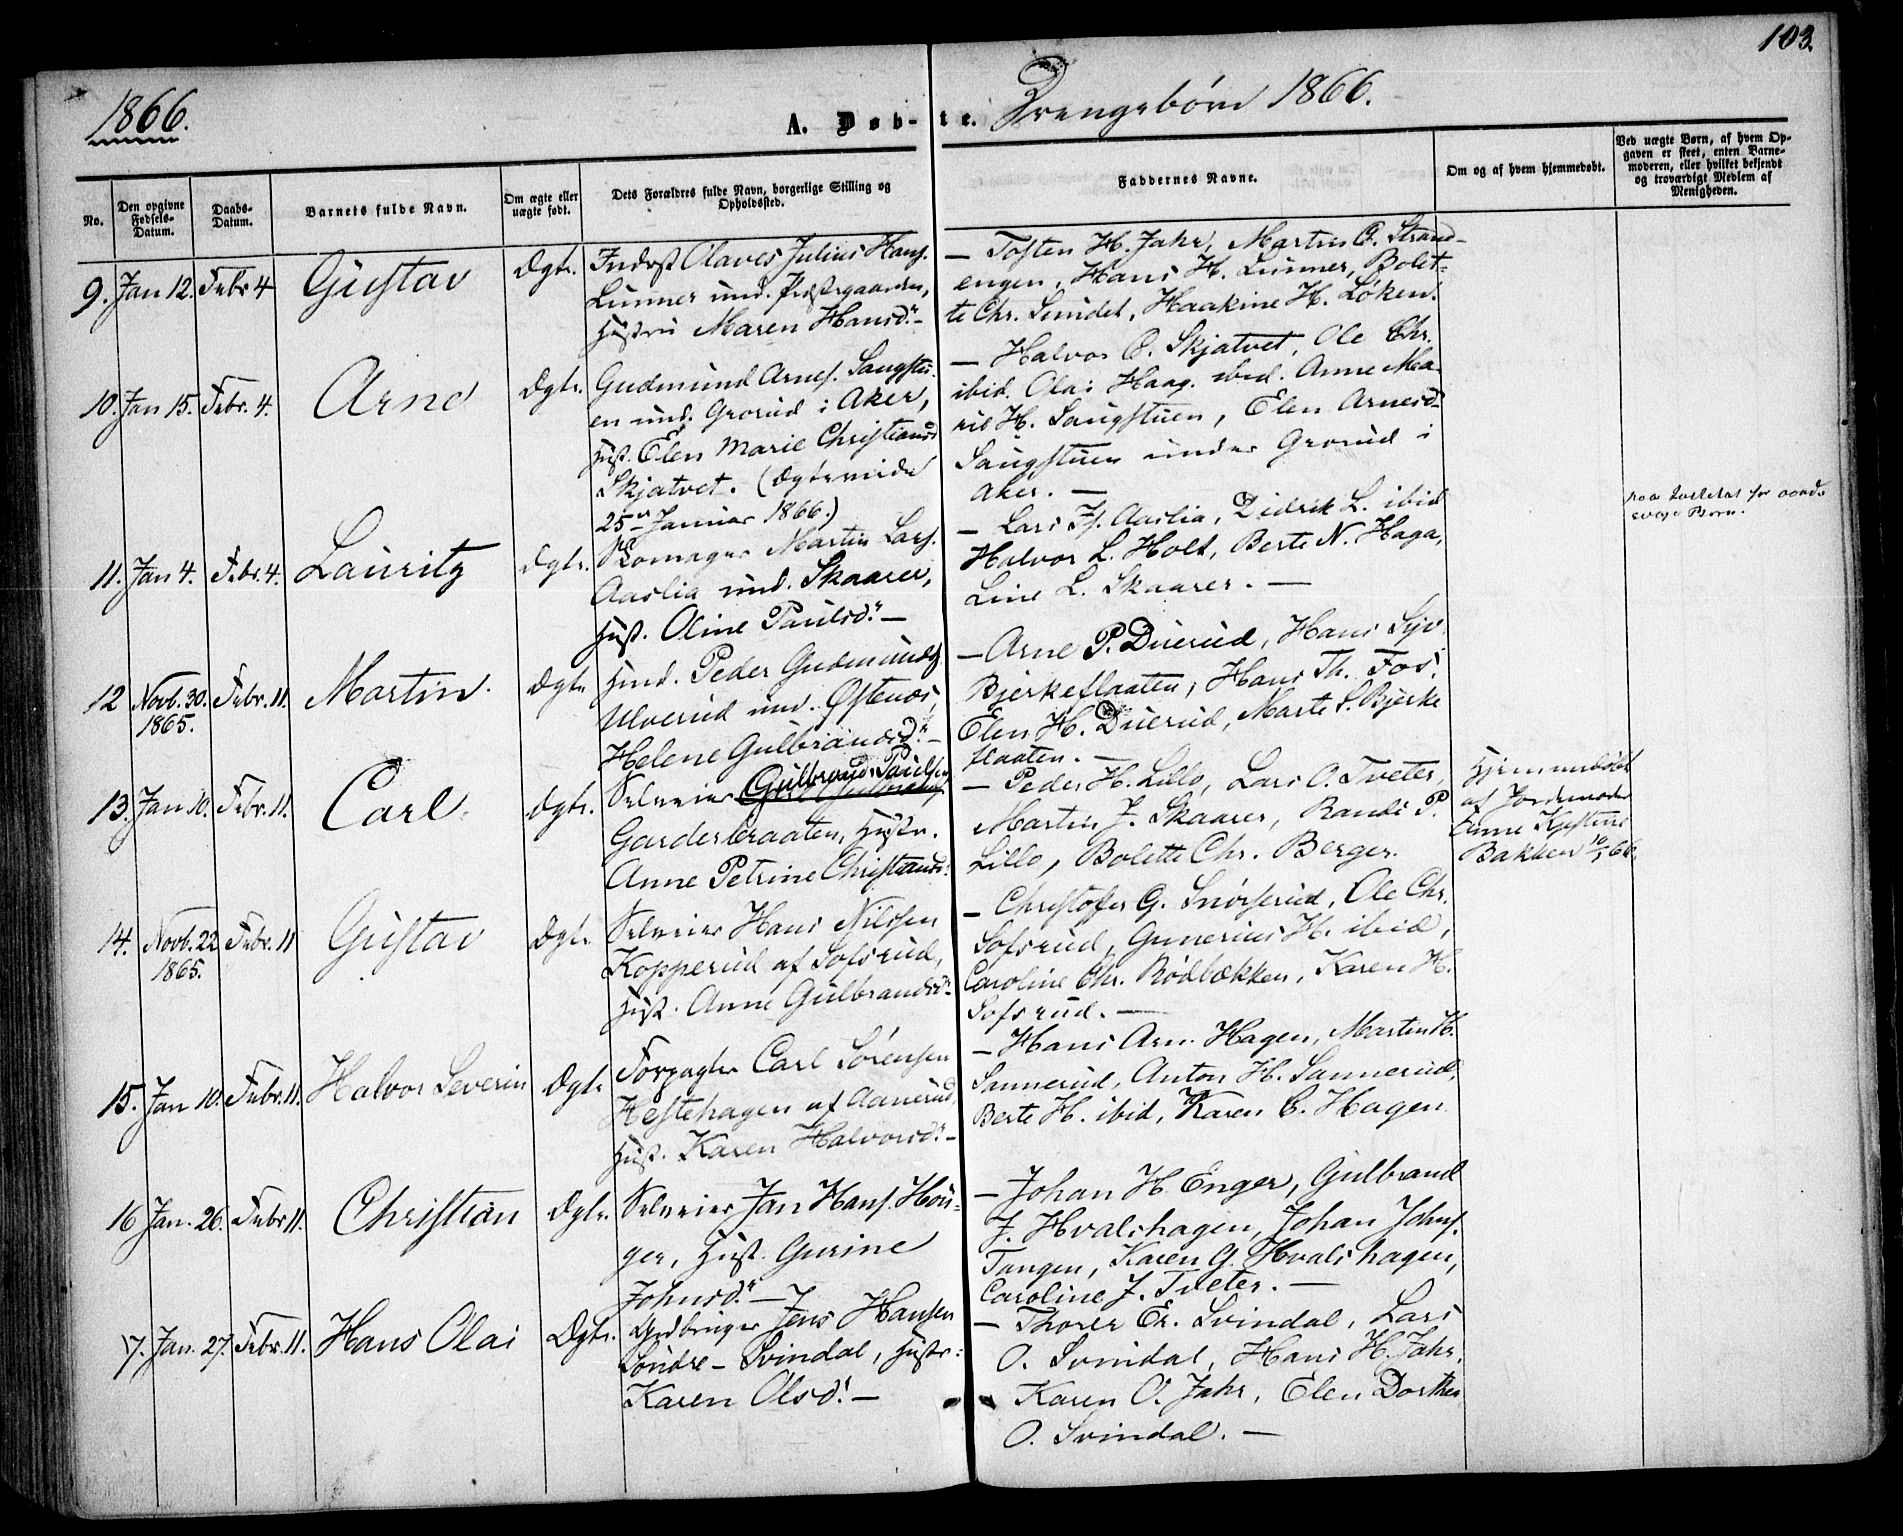 103.
1866.
A. Døb-te. Drengebørn 1866.
No.
Den opgivne Fødsels-Datum.
Daabs-Datum.
Barnets fulde Navn.
Om ægte eller uægte født.
Dets Forældres fulde Navn, borgerlige Stilling og Opholdssted.
Faddernes Navne.
Om og af hvem hjemmedøbt.
Ved uægte Børn, af hvem Opgaven er skeet, enten Barnemoderen, eller hvilket bekjendt og troværdigt Medlem af Menigheden.
9. Jan 12. Febr 4 Gustav Ægte.
Inderst Olaves Julius Hans.
Lunner und. Præstgaarden,
Hustru Maren Hansd.
— Tosten H. Jahr, Martin O. Strand-
engen, Hans H. Lunner, Bolet-
te Chr. Smedst, Haakine H. Løken.
10. Jan 15. Febr. 4. Arne Ægte.
Gudmund Arnes. Saugstu-
en und. Grorud i Aker,
Hust. Elen Marie Christiansd
Skjatvet. (Ægteviede
25de Januar 1866.)
— Halvor O. Skjatvet, Ole Chr.
ibid. Olai Haag. ibid. Anne Ma-
rie H. Saugstuen, Elen Arnesd.
Saugstuen under Grorud i
Aker. —
11. Jan 4. Febr. 4. Lauritz Ægte.
Skomager Martin Lars.
Aaslia und. Skaarer,
Hust. Oline Paulsd. —
— Lars Aaslia, Didrik L. ibid
Halvor L. Holt, Berte N. Haga,
Line L. Skaarer. —
12 Novb. 30. 1865. Febr. 11. Martin. Ægte
Husd. Peder Gudmunds
Ulverud und. Østenes,
Helene Gulbrandsd. —
— Arne P. Duerud, Hans Syv.
Bjerkeflaaten, Hans Th. Fos.
Elen H. Duerud, Marte S. Bjerke
flaaten. —
13. Jan 10. Febr. 11. Carl. Ægte.
Selveier Gulbrand Paulsen
Garderbraaten, Hustr.
Anne Petrine Christiansd.
— Peder H. Lillo, Lars O. Tveter,
Martin J. Skaarer, Randi P.
Lillo, Bolette Chr. Berger.
Hjemmedøbt
af Jordemoder
Anne Kjestine
Bakken 10/1 66.
14. Novb. 22 1865. Febr. 11 Gustav Ægte
Selveier Hans Nilssen
Kopperud af Sofsrud,
Hust. Anne Gulbrandsd.
— Christofer G. Snørserud, Ole Chr.
Sofsrud, Gunerius H. ibid,
Caroline Chr. Rødbækken, Karen H.
Sofsrud. —
15. Jan 10. Febr. 11. Halvor Severin Ægte
Forpagter Carl Sørensen
Hestehagen af Aanerud,
Hust. Karen Halvorsd. —
— Hans Arn. Hagen, Martin H.
Sannerud, Anton H. Sannerud,
Berte H. ibid, Karen C. Hagen.
16 Jan. 26. Febr. 11. Christian Ægte.
Selveier Jan Hans. Hou-
ger, Hust. Gurine
Johnsd. —
— Johan H Enger, Gulbrand
J. Hvalshagen, Johan Johns.
Tangen, Karen G. Hvalshagen,
Caroline J. Tveter. —
17. Jan. 27. Febr. 11. Hans Olai Ægte.
Gdbruger Jens Hansen
Søndre-Svindal, Hustr:
Karen Olsd. —
— Thorer Er. Svindal, Lars
O. Svindal, Hans H. Jahr,
Karen O. Jahr, Elen Dorthea
O. Svindal. —